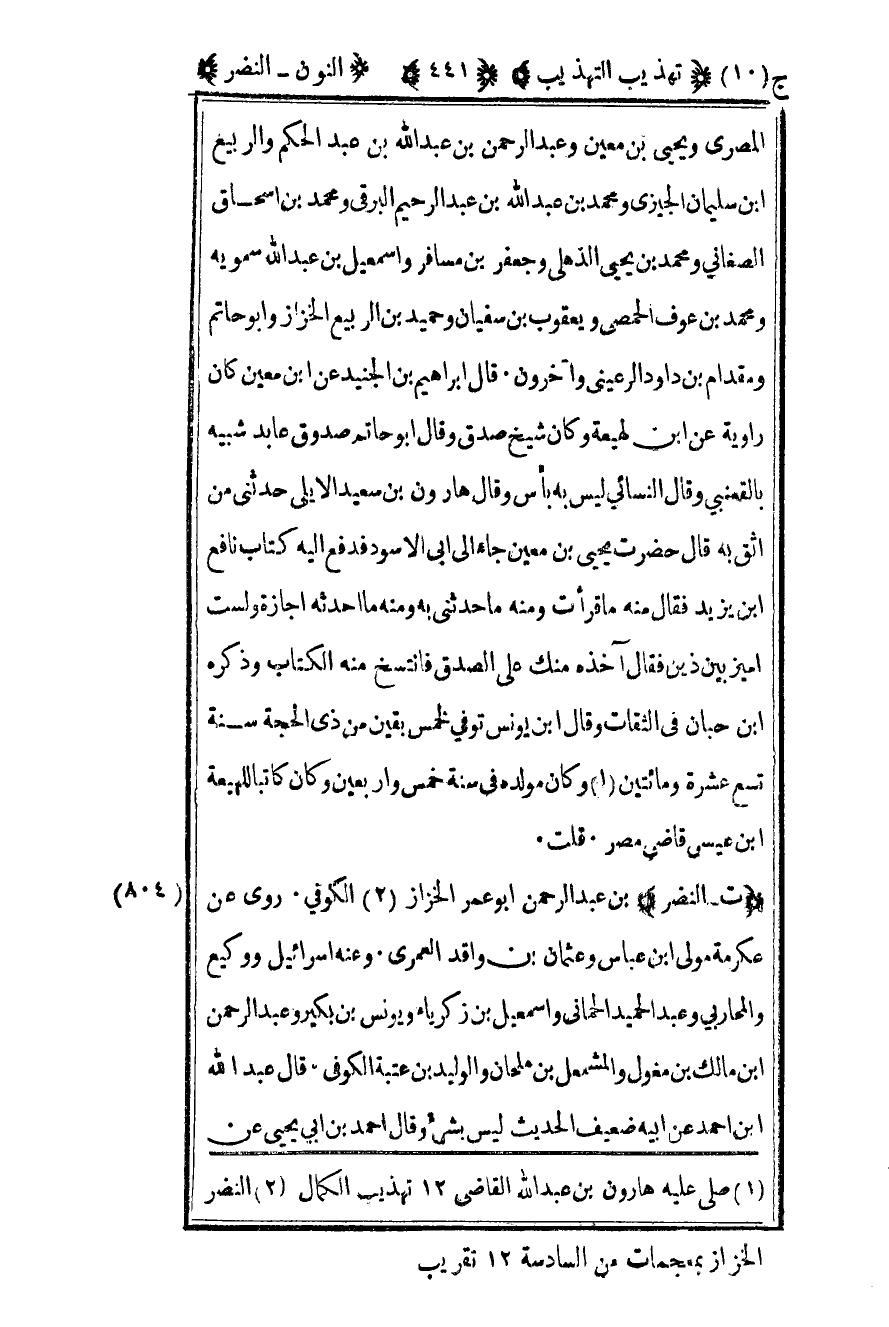 ج(١٠) ﴿ تهذيب التهذيب ﴾ ﴿ ٤٤١ ﴾ ﴿ النون ـ النضر ﴾
المصرى ويحيى بن معين وعبدالرحمن بن عبدالله بن عبد الحكم والربيع
ابن سليمان الجيزى ومحمد بن عبدالله بن عبدالرحيم البرقى ومحمد بن اسحاق
الصغاني ومحمد بن يحيى الذهلى وجعفر بن مسافر واسمعيل بن عبدالله سمويه
ومحمد بن عوف الحمصى ويعقوب بن سفيان وحميد بن الربيع الخزاز وابو حاتم
ومقدام بن داود الرعينى وآخرون ٠ قال ابراهيم بن الجنيد عن ابن معين كان
راوية عن ابن لهيعة وكان شيخ صدق وقال ابو حاتم صدوق عابد شبيه
بالقعنبي وقال النسائي ليس به بأس وقال هارون بن سعيد الايلى حدثنى من
اثق به قال حضرت يحيى بن معين جاء الى ابى الاسود فدفع اليه كتاب نافع
ابن يزيد فقال منه ما قرأت ومنه ما حدثنى به ومنه ما احدثه اجازة ولست
اميز بين ذين فقال آخذه منك على الصدق فانتسخ منه الكتاب وذكره
ابن حبان فى الثقات وقال ابن يونس توفي لخمس بقين من ذى الحجة سنة
تسع عشرة ومائتين (١) وكان مولده فى سنة خمس واربعين وكان كاتبا للهيعة
ابن عيسى قاضي مصر ٠ قلت ٠
﴿ ت ـ النضر ﴾ بن عبدالرحمن ابو عمر الخزاز (٢) الكوفي ٠ روى عن (٨٠٤)
عكرمة مولى ابن عباس وعثمان بن واقد العمرى ٠ وعنه اسرائيل ووكيع
والمحاربي وعبد الحميد الحمانى واسمعيل بن زكرياء ويونس بن بكير وعبدالرحمن
ابن مالك بن مغول والمشمعل بن ملحان والوليد بن عتبة الكوفى ٠ قال عبد الله
ابن احمد عن ابيه ضعيف الحديث ليس بشئ وقال احمد بن ابي يحيى عن
(١) صلى عليه هارون بن عبدالله القاضى ١٢ تهذيب الكمال (٢) النضر
الخزاز بمعجمات من السادسة ١٢ تقريب